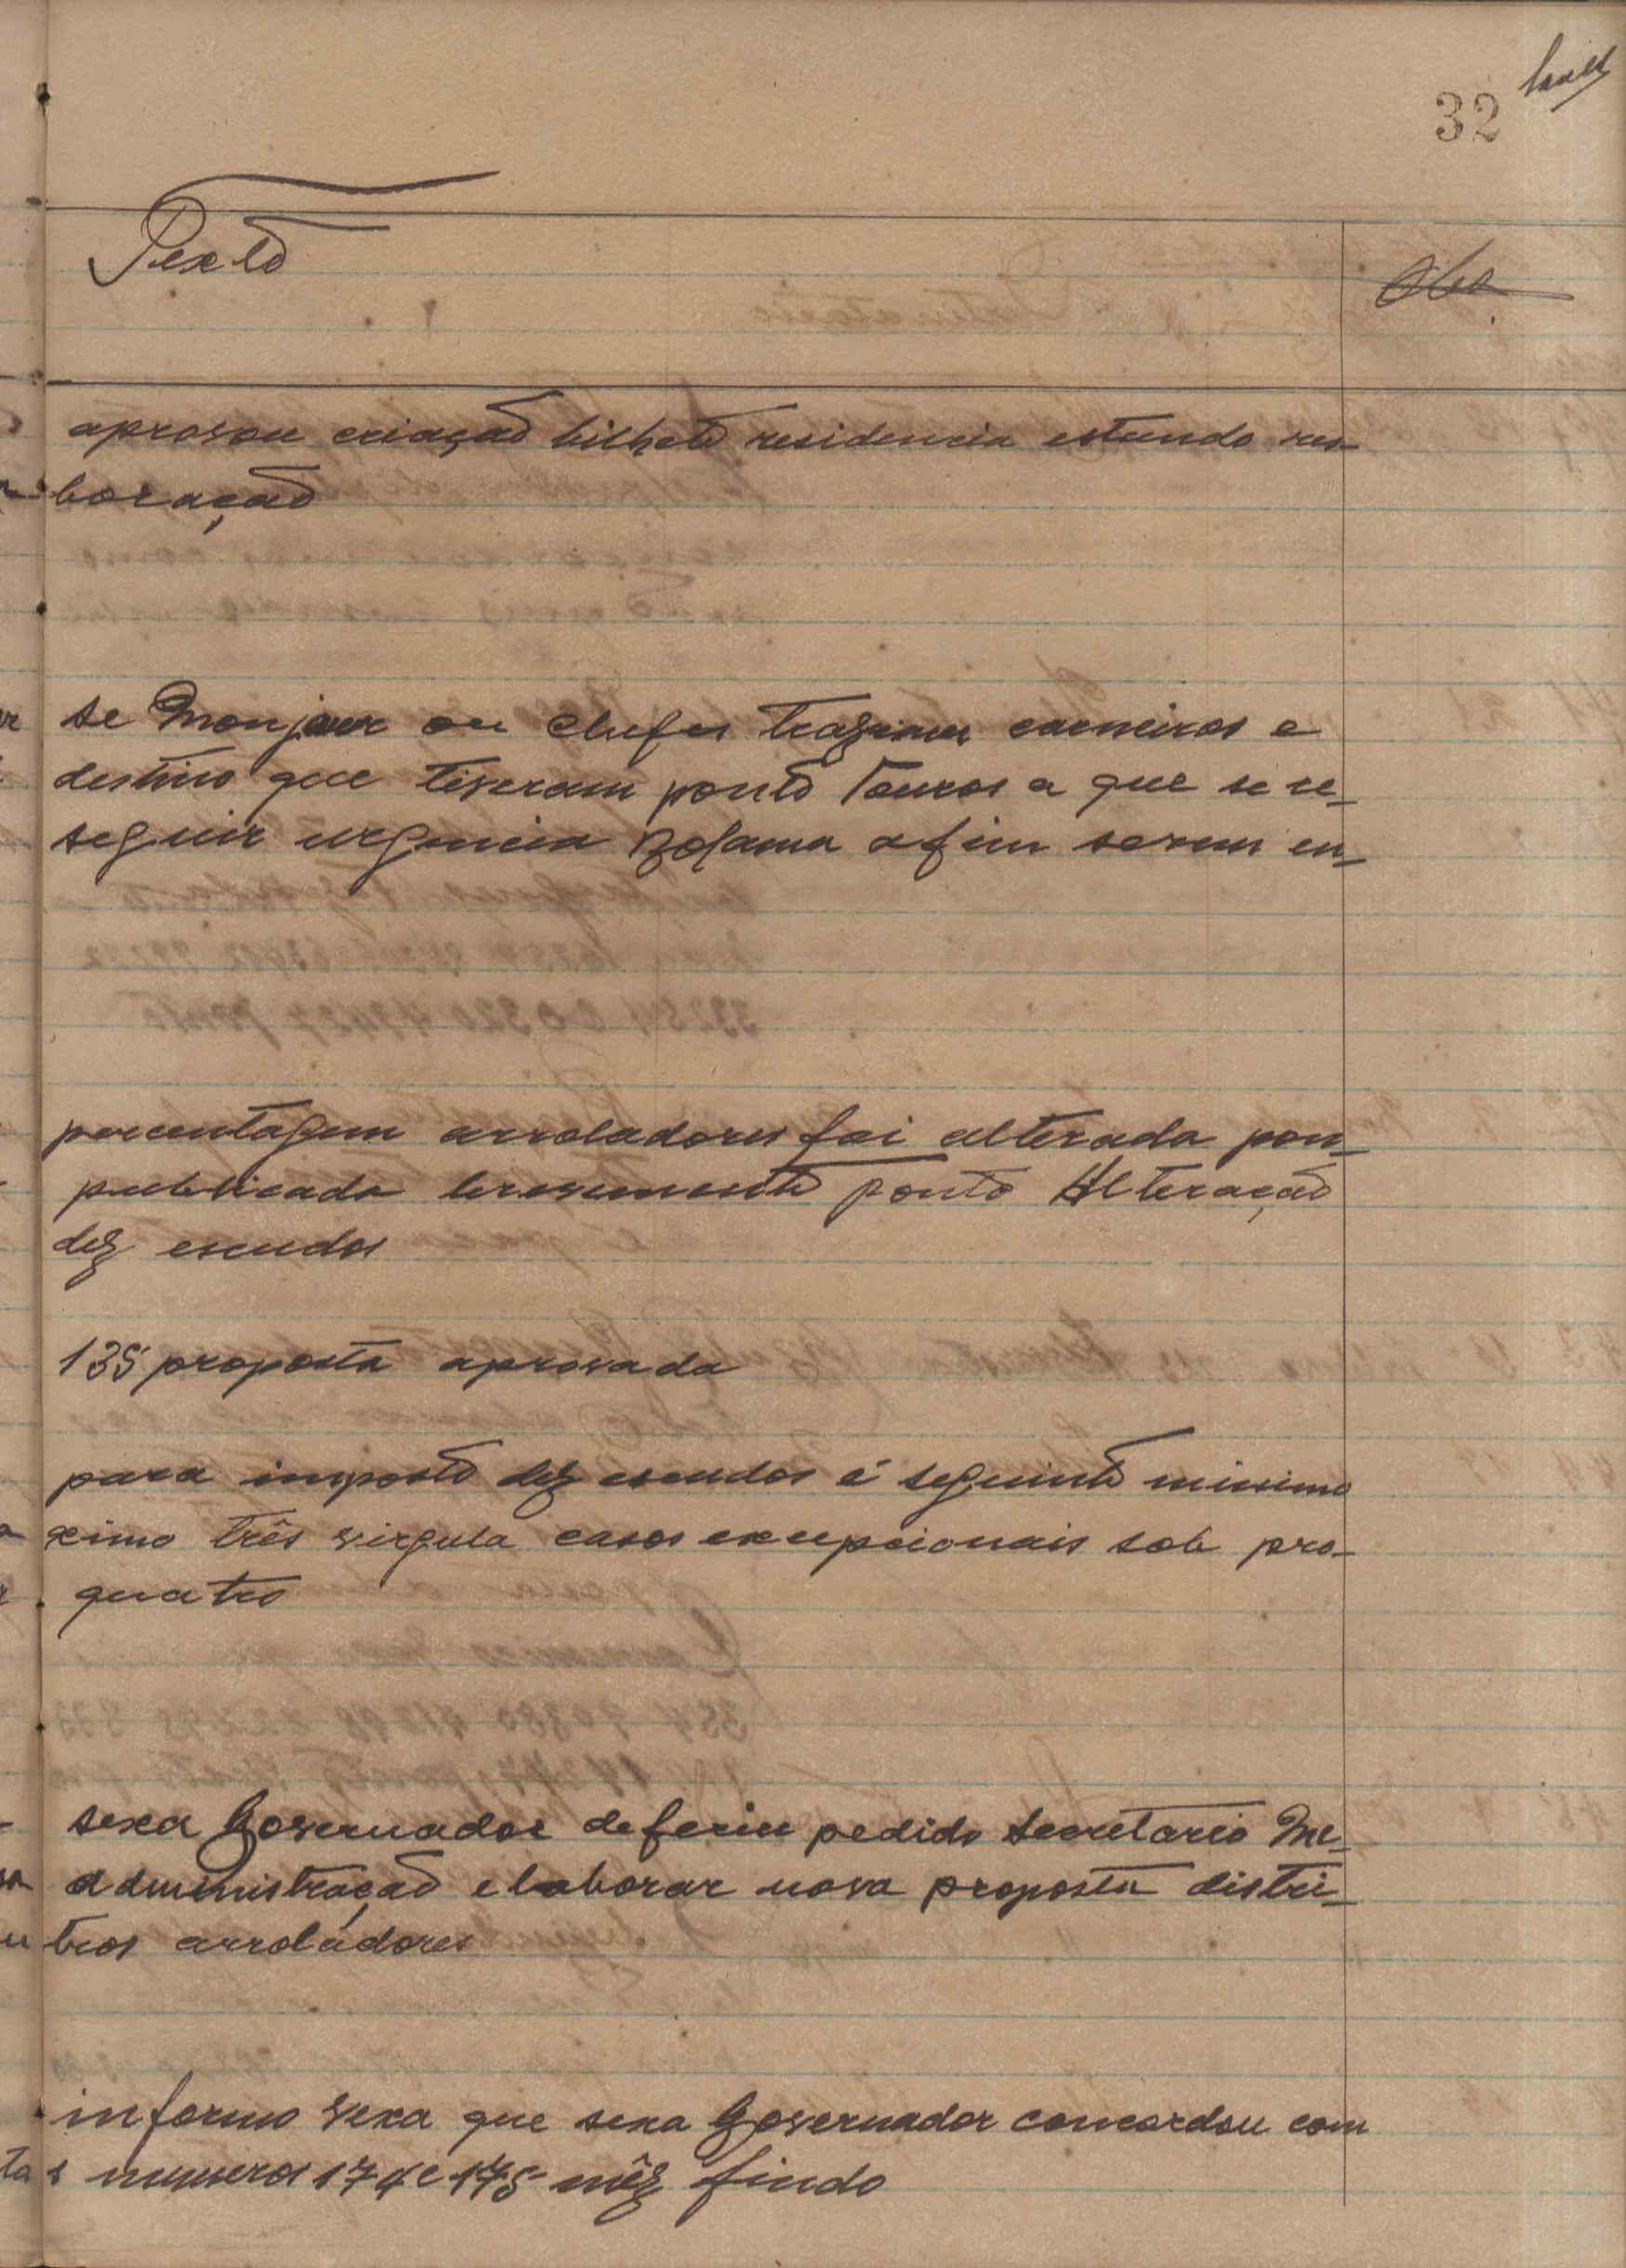 32
Texto
Obs
aprovou criação bilhete residencia estando res-
boração
se Monjour ou chefes traziam carneiros e
destino que tiveram ponto Touros a que se re-
seguir urgencia Bolama afim serem en-
percentagem arroladores foi alterada pon-
publicada brevemente ponto Alteração
dez escudos
135 proposta aprovada
para imposto dez escudos é seguinte minimo
ximo três virgula casos excepcionais sob pro-
quatro
sexa Governador deferiu pedido secretario Me-
administração elaborar nova proposta distri-
tros arroládores
informo vexa que sexa Governador concordou com
s numeros 174 e 175 mês findo